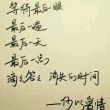 等待最后眼
最后一遍
最后一天
最后一刻
滴答答 消失的时间
——何以爱情